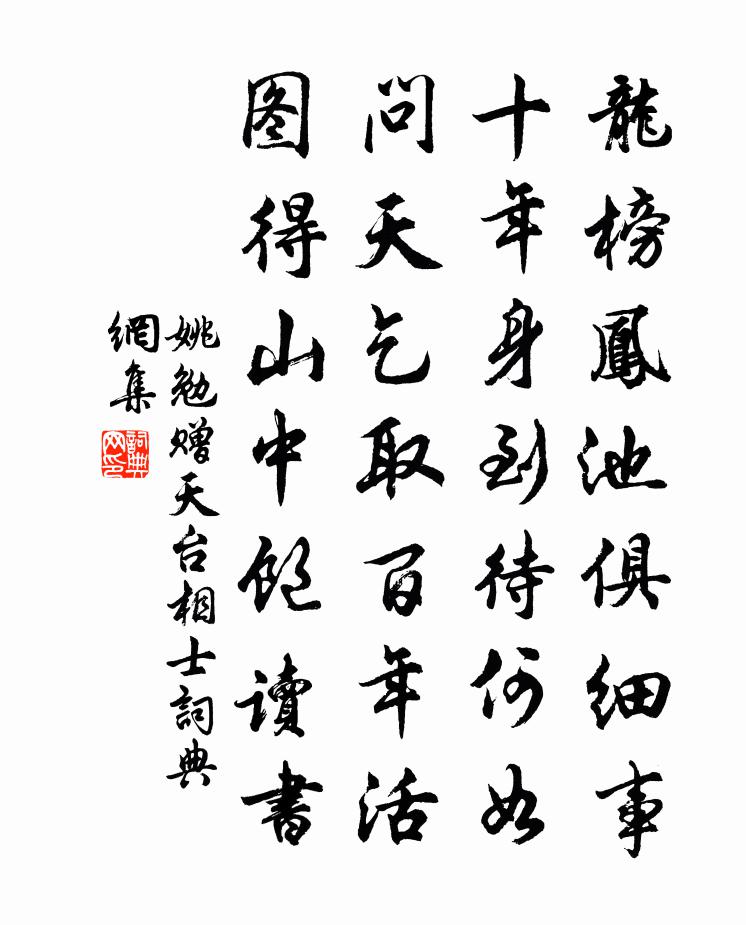 龍榜鳳池俱細事
十年身到待何如
問天乞取百年活
图得山中飽讀書
姚勉贈天台相士詞典
網集
詞典
网印